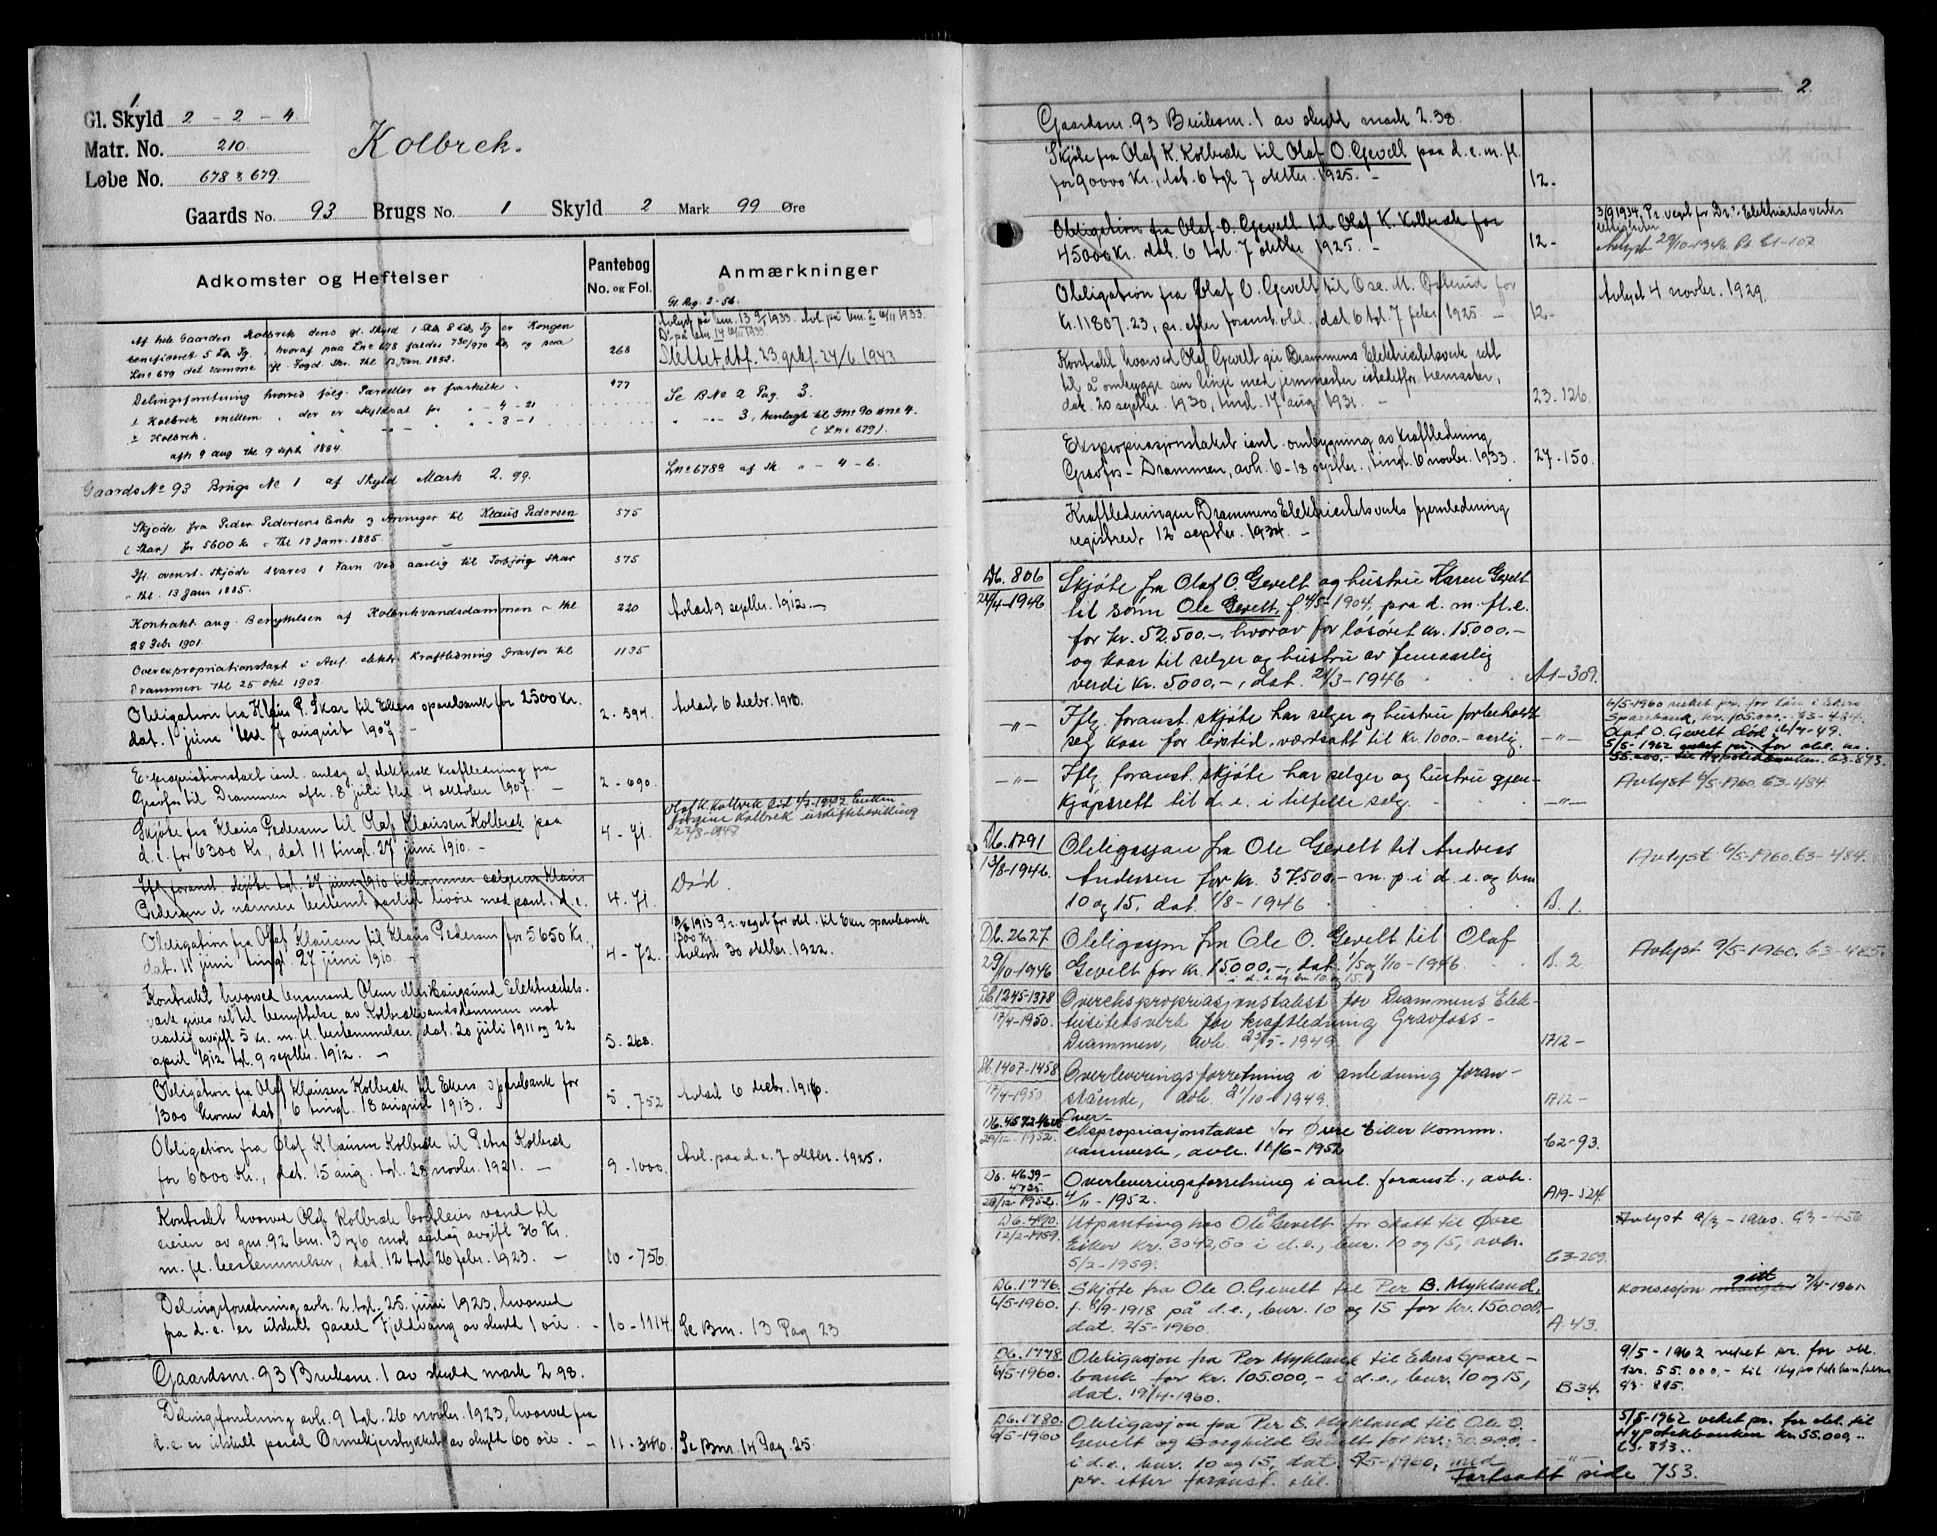 1.
Gl. Skyld 2 - 2 - 4
Matr. No. 210
Løbe No. 678 & 679.
Kolbrek.
Gaards No. 93 Brugs No. 1 Skyld 2 Mark 99 Øre
Adkomster og Heftelser
Pantebog No. og Fol.
Anmærkninger
Gl. Reg. 2-56.
Af hele Gaarden Kolbrek dens gl. Skyld 1 Skp 8 Lp er Kongen
beneficeret 5 hvoraf paa Lno 678 faldes 730/970 og paa
Lno 679 det samme Fogd. Skr. thl 13 Jan. 1882. 268
Slettet, dbf. 23 24/6 1943
Delingsforretning hvorved følg. Parceller er fraskilte. 477
1 Kolbrek mellem, der er skyldsat for " - 4 - 21 Se BNo 2 Pag. 3.
2 Kolbrek. " " " - 3 - 1 " 3, henlagt til GNo 90 BNo 4.
(Lno 679).
afh 9 aug thl 9 sept. 1884.
Lno 678a af Sk. " - 4 - 6.
Gaards No 93 Brugs No 1 af Skyld Mark 2.99.
Skjøde fra Peder Pedersens Enke og Arvinger til Klaus Pedersen 575
(Skar) for 5600 Kr - Thl 13 Jan. 1885.
Ifl. ovenst. Skjøde svares 1 Favn Ved aarlig til Torbjørg Skar 575
- thl. 13 Jan 1885.
Kontrakt ang. Benyttelsen af Kolbrekvandsdammen - thl 220 Avlæst 9 septbr. 1912. -
28 Febr 1901.
Overexpropriationstaxt i Anl. elektr. Kraftledning Gravfos til 1135
Drammen thl 25 Okt 1902.
Obligation fra Klaus P. Skar til Ekers sparebank for 2500 Kr. 2 - 594. Avlæst 6 decbr. 1910.
dat. 1 juni thl 7 august 1907 -
Expropriationstaxt i anl. anlæg af elektrisk kraftledning fra 2 - 690.
Gravfos til Drammen afh. 8 juli thl 4 oktober 1907. -
Skjøte fra Klaus Pedersen til Olaf Klausen Kolbrek paa 4 - 71.
d. e. for 6300 Kr., dat. 11 tingl. 27 juni 1910. -
Jørgine Kolbrek uskiftebevilling
27/8-1947
Iflg foranst. skjøte tgl. 27 juni 1910 tilkommer sælgeren Klaus
Pedersen et nærmere bestemt aarligt livøre med pant i d. e. 4 - 71. Død.
Obligation fra Olaf Klausen til Klaus Pedersen for 5650 Kr., 4 - 72.
dat. 11 juni tingl. 27 juni 1910. -
1913 Pr. veget for obl. til Eker sparebank
1300 Kr.
Avlæst 30 oktbr. 1922.
Kontrakt hvorved brugsmand Elektricitets-
værk gives ret til benyttelse av Kolbrekvandsdammen mot
aarlig avgift 5 kr. m. fl. bestemmelser, dat. 20 juli 1911 og 22 5. 268.
april 1912 tgl. 9 septbr. 1912. -
Obligation fra Olaf Klausen Kolbrek til Ekers sparebank for 5. 752 Avlæst 6 decbr. 1916.
1300 kroner dat. 6 tingl. 18 august 1913.
Obligation fra Olaf Klausen Kolbrek til Petra Kolbrek 9 - 1000. Avl. paa d. e. 7 oktbr. 1925.
for 6000 Kr., dat. 15 aug. tgl. 28 novbr. 1921. -
Kontrakt hvorved Olaf Kolbrek bortleier vand til
eieren av gnr. 92 bnr. 13 og 6 mot aarlig avgift 36 Kr. 10 - 756.
m. fl. bestemmelser, dat. 12 tgl. 26 febr. 1923. -
Delingsforretning avh. 2 tgl. 25. juni 1923, hvorved
fra d. e. er utskilt parcel Fjeldvang av skyld 1 øre. - 10 - 1114. Se Bnr. 13 Pag 23
Gaardsnr. 93 Bruksnr. 1 av skyld mark 2.98.
Delingsforretning avh. 9 tgl. 26 novbr. 1923, hvorved fra
d. e. er utskilt parcel Ormekjerstykket av skyld 60 øre. - 11 - 346. Se Bnr. 14 Pag 25.
2.
Gaardsnr. 93 Bruksnr. 1 av skyld mark 2.38.
Skjøte fra Olaf K. Kolbrek til Olaf O. Gevelt paa d. e. m. fl.
for 90000 Kr., dat. 6 tgl 7 oktbr. 1925. - 12 -
Obligation fra Olaf O. Gevelt til Olaf K. Kolbrek for
45000 Kr. dat. 6 tgl. 7 oktbr. 1925. - 12 -
3/9 1934, Pr. veget for Dr. Elektricitetsverks
rettigheter
Avlyst 29/10-1946 Pb. 61-102
Obligation fra Olaf O. Gevelt til Ose M. for
Kr. 11807.23, pr. efter foranst. obl., dat. 6 tgl. 7 1925. - 12 - Avlyst 4 novbr. 1929.
Kontrakt hvorved Olaf Gevelt gir Drammens Elektricitetsverk rett
til å ombygge sin linje med jernmaster istedetfor tremaster,
dat. 20 septbr. 1930, tingl. 17 aug. 1931. - 23. 126.
Ekspropriasjonstakst i anl. ombygning av kraftledning
Gravfos - Drammen, avh. 6-18 septbr., tingl. 6 novbr. 1933. 27-150.
Kraftledningen Drammens Elektricitetsverks fjernledning
registrert 12 septbr. 1934. -
Db. 806
24/4-1946
Skjøte fra Olaf O. Gevelt og hustru Karen Gevelt
til sønn Ole Gevelt, f. 14/5-1904, paa d. m. fl. e.
for kr. 52.500.-, hvorav for løsøret kr. 15.000.-
og kaar til selger og hustru av femaarlig
verdi kr. 5.000.-, dat. 21/3-1946 A1-309.
-"- Iflg. foranst. skjøte har selger og hustru forbeholdt
seg kaar for livstid, værdsatt til kr. 1000.- aarlig. -"-
6/5-1960 veket pr. for lån i Ekers
Sparebank, kr. 105.000.- G3-484.
Olaf O. Gevelt død 16/4-49.
5/5-1962 veket pr. for obl. kr.
55.000.- til Hypotekbanken. G3-893.
-"- Iflg. foranst. skjøte har selger og hustru gjen-
kjøpsrett til d. e. i tilfelle salg. -"- Avlyst 6/5-1960. G3-484.
Db. 1791
13/8-1946.
Obligasjon fra Ole Gevelt til Andreas
Andersen for kr. 37.500.- m. p. i d. e. og bnr
10 og 15, dat. 1/8-1946 B. 1. Avlyst 6/5-1960. G3-484.
Db. 2627
29/10-1946
Obligasjon fra Ole O. Gevelt til Olaf
Gevelt for kr. 15.000.-, dat. 1/5 og 1/10-1946. B. 2 Avlyst 9/5-1960. G3-485.
i d. e. og bnr. 10 og 15.
Db. 1245-1378
17/4-1950.
Overekspropriasjonstakst for Drammens Elek-
trisitetsverk for kraftledning Gravfoss -
Drammen, avh. 25/5-1949. A12 -
Db. 1407-1458
17/4-1950.
Overleveringsforretning i anledning foran-
stående, avh. 21/10-1949. A12 -
29/12-1952.
Over-
ekspropriasjonstakst for Øvre Eiker komm.
vannverk, avh. 11/6-1952 G2-93.
Db. 4639-
4725
29/12-1952.
Overleveringsforretning i anl. foranst., avh.
4/11-1952. A19-524.
Db. 490.
12/2-1959.
Utpanting hos Ole O. Gevelt for skatt til Øvre
Eiker kr. 3042,50 i d. e., bnr. 10 og 15, avh.
5/2-1959. G3-259. Avlyst 9/3-1960. G3-456
Db. 1776.
6/5-1960.
Skjøte fra Ole O. Gevelt til Per B. Mykland,
f. 8/9-1918 på d. e., bnr. 10 og 15 for kr. 150.000,-
dat. 2/5-1960. A. 43. Konsesjon gitt 7/4-1961.
Db. 1778
6/5-1960.
Obligasjon fra Per Mykland til Ekers Spare-
bank for kr. 105.000,- i d. e., bnr. 10 og 15,
dat. 19/4-1960. B 34.
9/5-1962 veket pr. for obl.
kr. 55.000,- til Hypotekbanken
G3. 895.
Db. 1780.
6/5-1960
Obligasjon fra Per B. Mykland til Ole O.
Gevelt og Borghild Gevelt for kr. 30.000,-
i d. e., bnr. 10 og 15, dat. 5/5-1960, med -"-
pr. etter foranst. obl.
5/5-1962 veket pr. for obl. til
Hypotekbanken kr. 55.000,-
G3. 893.
Fortsatt side 753.